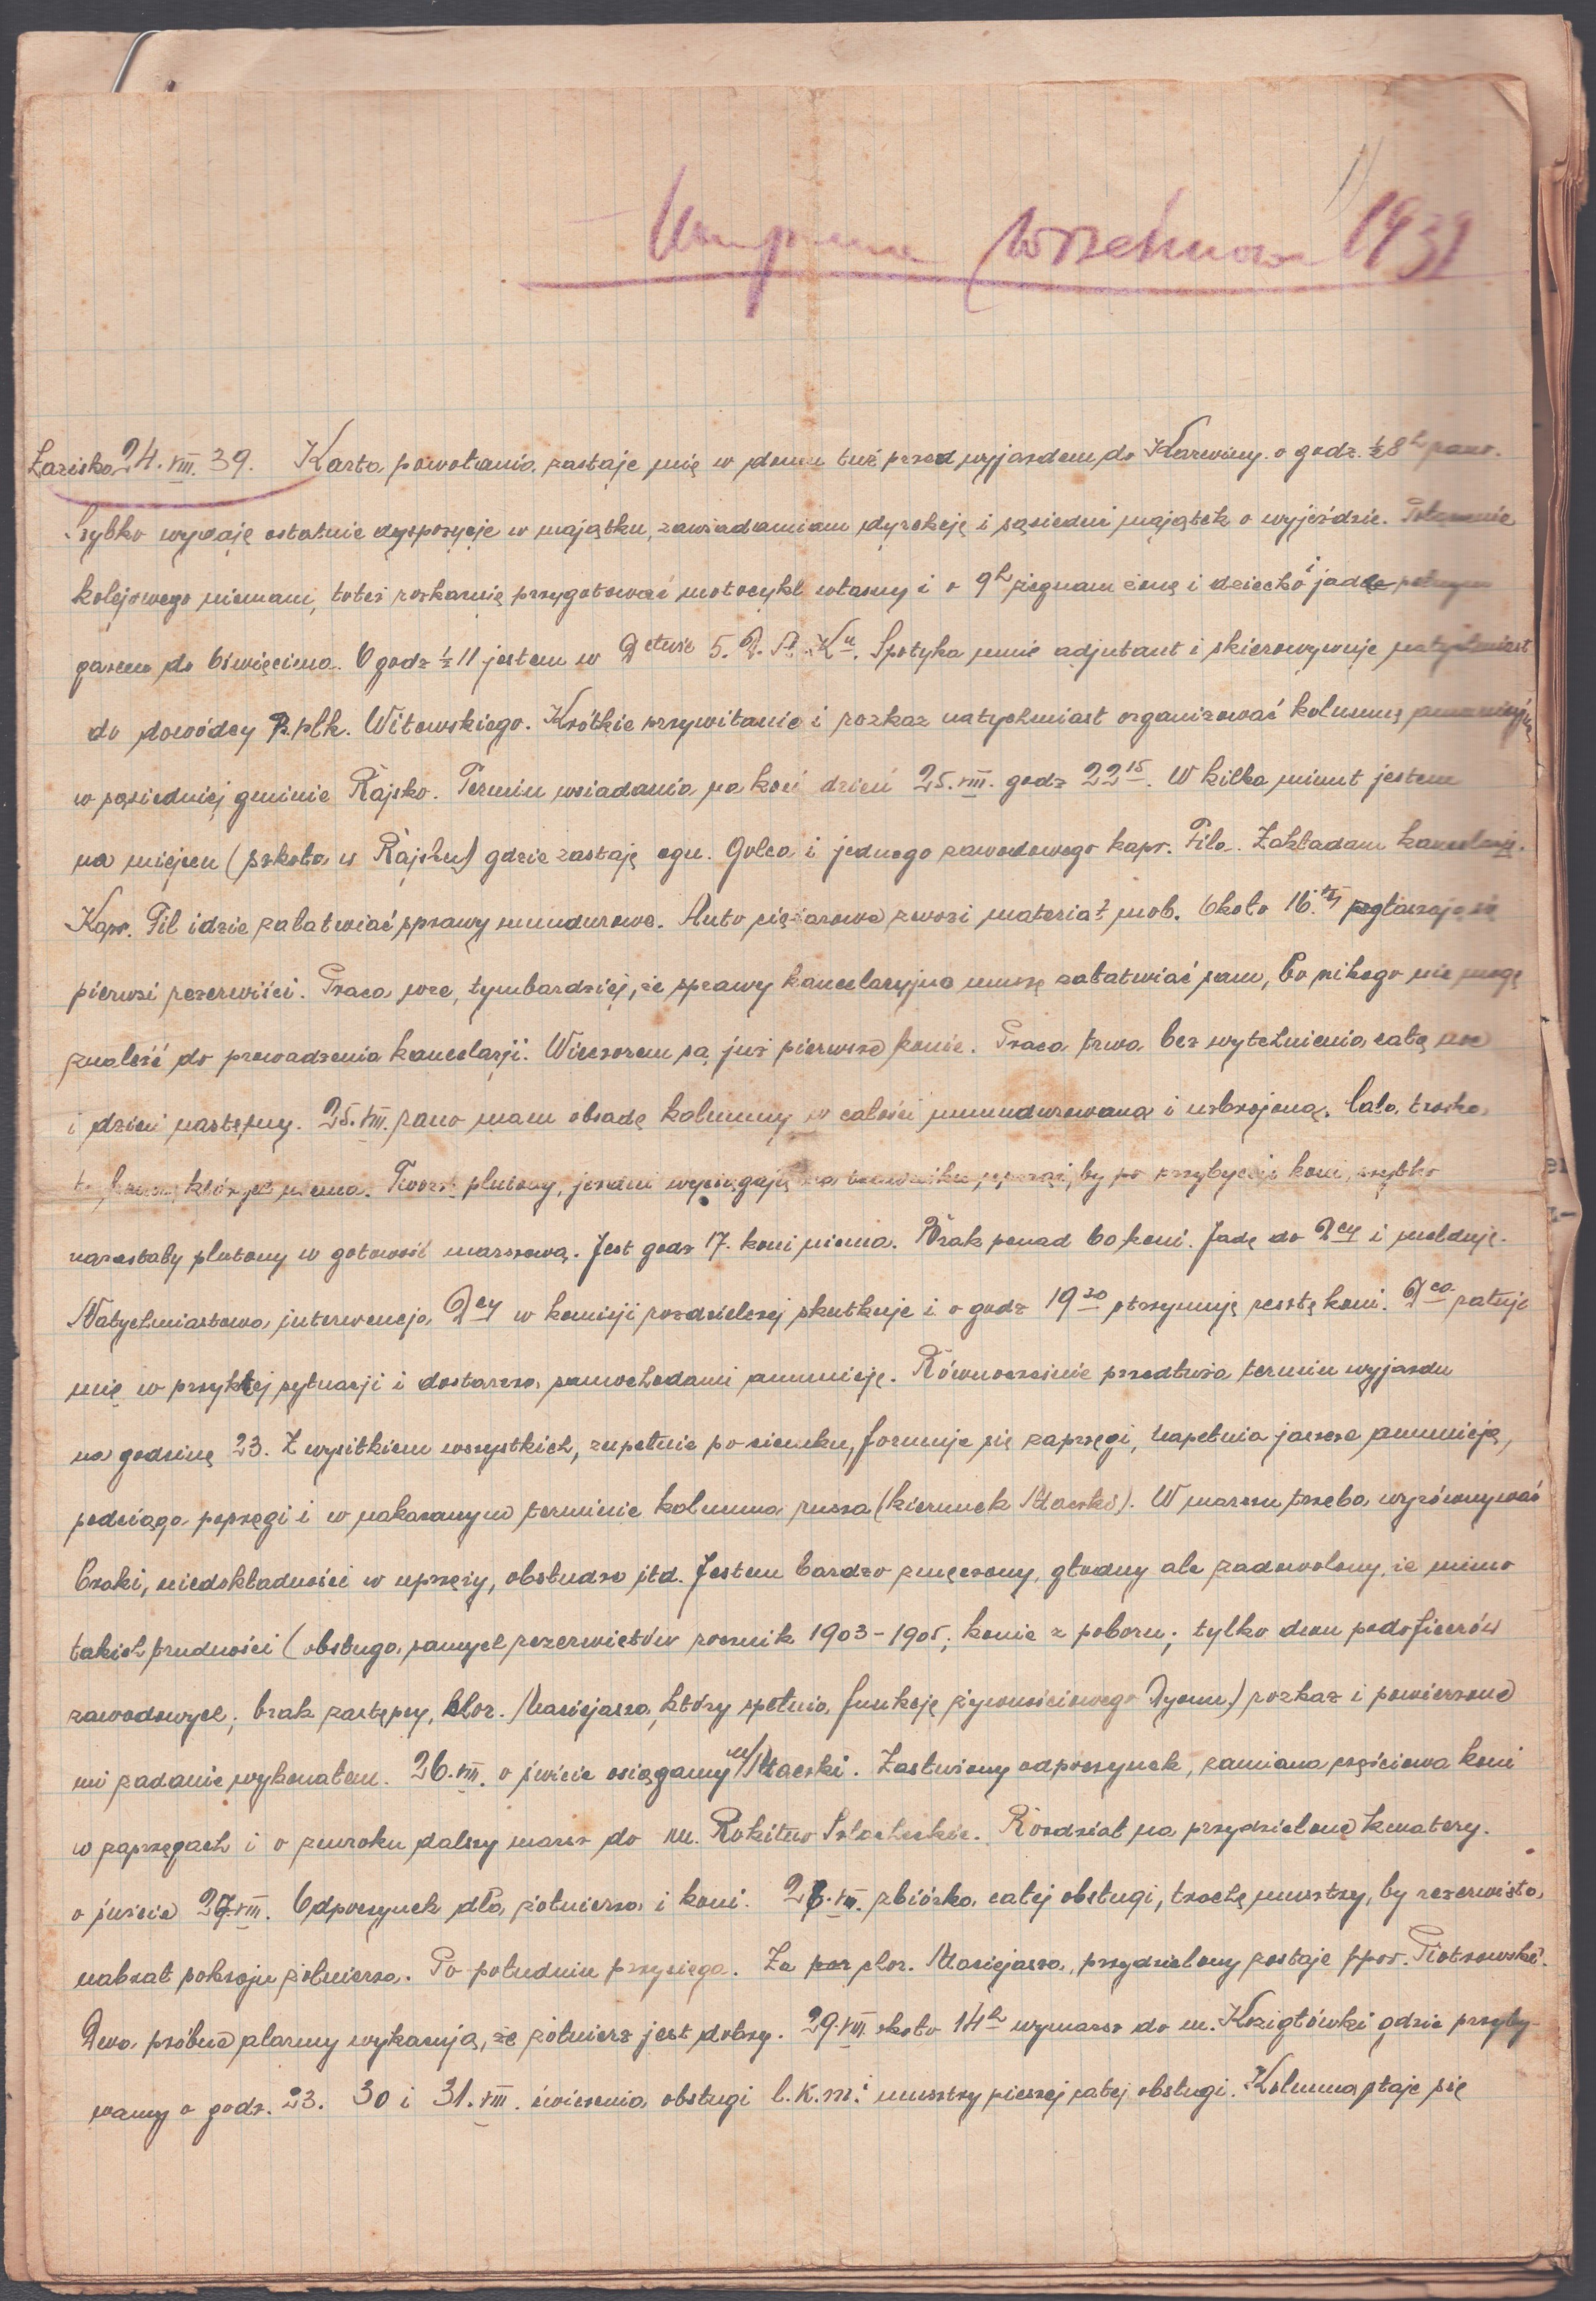 Kampania Wrześniowa 1939
Łaziska 24.VIII.39. Karta powołania zastaje mię w domu tuż przed wyjazdem do Karwiny o godz. ½8h rano.
Szybko wydaję ostatnie dyspozycje w majątku, zawiadamiam dyrekcję i sąsiedni majątek o wyjeździe. Połączenia
kolejowego niemam, toteż rozkazuję przygotować motocykl własny i o 9h żegnam żonę i dziecko i jadę pełnym
gazem do Oświęcima. O godz ½11 jestem w Dctwie 5. D. A. K. Spotyka mnie adjutant i skierowywuje natychmiast
do dowódcy p.płk. Witowskiego. Krótkie przywitanie i rozkaz natychmiast organizować kolumnę amunicyjną
w sąsiedniej gminie Rajsko. Termin wsiadania na koń dzień 25.VIII. godz 22 15. W kilka minut jestem
na miejscu (szkoła w Rajsku) gdzie zastaję ogn. Golca i jednego zawodowego kapr. Fila. Zakładam kancelarję.
Kapr. Fil idzie załatwiać sprawy mundurowe. Auto ciężarowe zwozi materiał mob. Około 16. zgłaszają się
pierwsi rezerwiści. Praca wre, tymbardziej, że sprawy kancelaryjne muszę załatwiać sam, bo nikogo nie mogę
znaleść do prowadzenia kancelarji. Wieczorem są już pierwsze konie. Praca trwa bez wytchnienia całą noc
i dzień następny. 25.VIII. rano mam obsadę kolumny w całości umundurowaną i uzbrojoną. Cała troska
to konie, których niema. Tworzę plutony, jezdni wyciągają na trawniku uprząż, by po przybyciu koni, szybko
narastały plutony w gotowość marszową. Jest godz 17. koni niema. Brak ponad 60 koni. Jadę do Dcy i melduję.
Natychmiastowa interwencja Dcy w komisji rozdzielczej skutkuje i o godz 19 30 otrzymuję resztę koni. Dca ratuje
mię w przykrej sytuacji i dostarcza samochodami amunicję. Równocześnie przedłuża termin wyjazdu
na godzinę 23. Z wysiłkiem wszystkich, zupełnie po ciemku, formuje się zaprzęgi, napełnia jaszcze amunicją,
podciąga popręgi i w nakazanym terminie kolumna rusza (kierunek Maczki). W marszu trzeba wyrównywać
braki, niedokładności w uprzęży, obsłudze itd. Jestem bardzo zmęczony, głodny ale zadowolony, że mimo
takich trudności (obsługa, samych rezerwistów rocznik 1903-1905; konie z poboru; tylko dwu podoficerów
zawodowych; brak zastępcy, chor. Maciejasza, który spełnia funkcję żywnościowego Dyonu) rozkaz i powierzone
mi zadanie wykonałem. 26.VIII. o świcie osiągamy m/Maczki. Zasłużony odpoczynek, zamiana częściowa koni
w zaprzęgach i o zmroku dalszy marsz do m. Rokitno Szlacheckie. Rozdział na przydzielone kwatery.
o świcie 27.VIII. Odpoczynek dla żołnierza i koni. 28.VIII. zbiórka całej obsługi, trochę musztry, by rezerwista
nabrał pokroju żołnierza. Po południu przysięga. Za chor. Maciejasza, przydzielony zostaje ppor. Piotrowski.
Dwa próbne alarmy wykazują, że żołnierz jest dobry. 29.VIII około 14h wymarsz do m. Koziegłówki gdzie przyby-
wamy o godz. 23. 30 i 31.VIII. ćwiczenia obsługi l.k.m. i musztry pieszej całej obsługi. Kolumna staje się